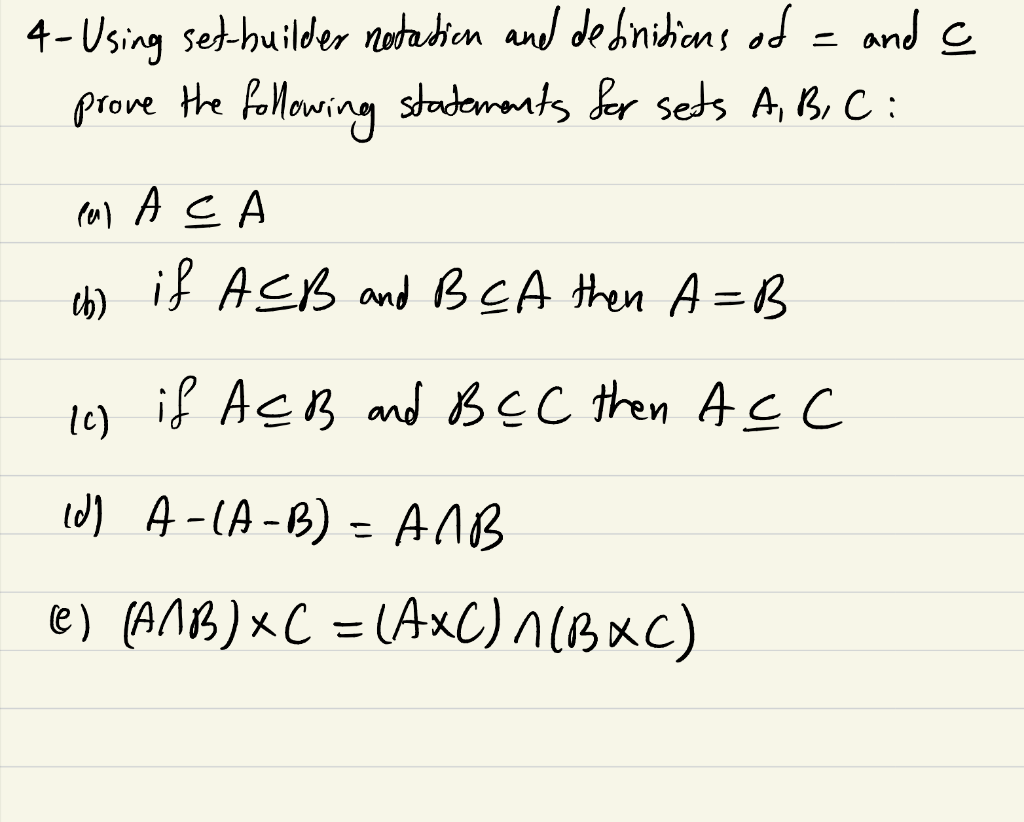 4- Using set-builder notation and definitions of = and ⊆
prove the following statements for sets A, B, C :
(a) A ⊆ A
(b) if A ⊆ B and B ⊆ A then A = B
(c) if A ⊆ B and B ⊆ C then A ⊆ C
(d) A - (A - B) = A ∩ B
(e) (A ∩ B) × C = (A × C) ∩ (B × C)